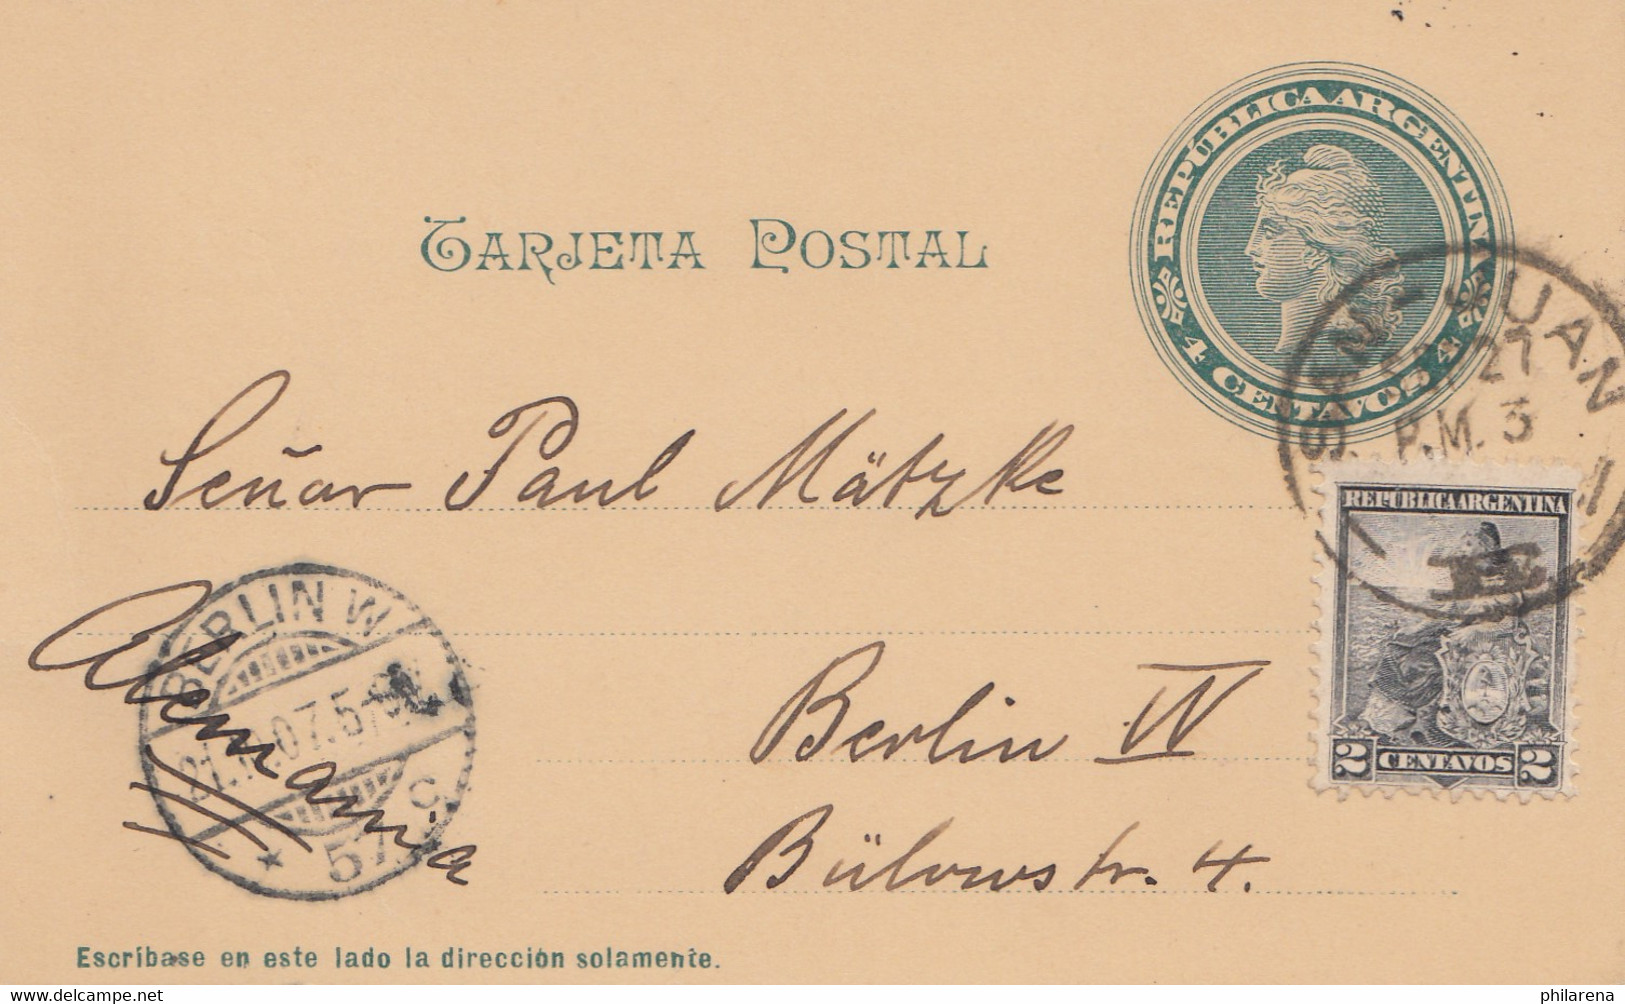 REPÚBLICA ARGENTINA
4 CENTAVOS 4
TARJETA POSTAL
SAN-JUAN
27
P.M. 3
Señor Paul Mätzke
REPÚBLICA ARGENTINA
2 CENTAVOS 2
Alemania
BERLIN W
07.5
57 c.
Berlin W
Bülowstr. 4.
Escríbase en este lado la dirección solamente.
www.delcampe.net
philarena